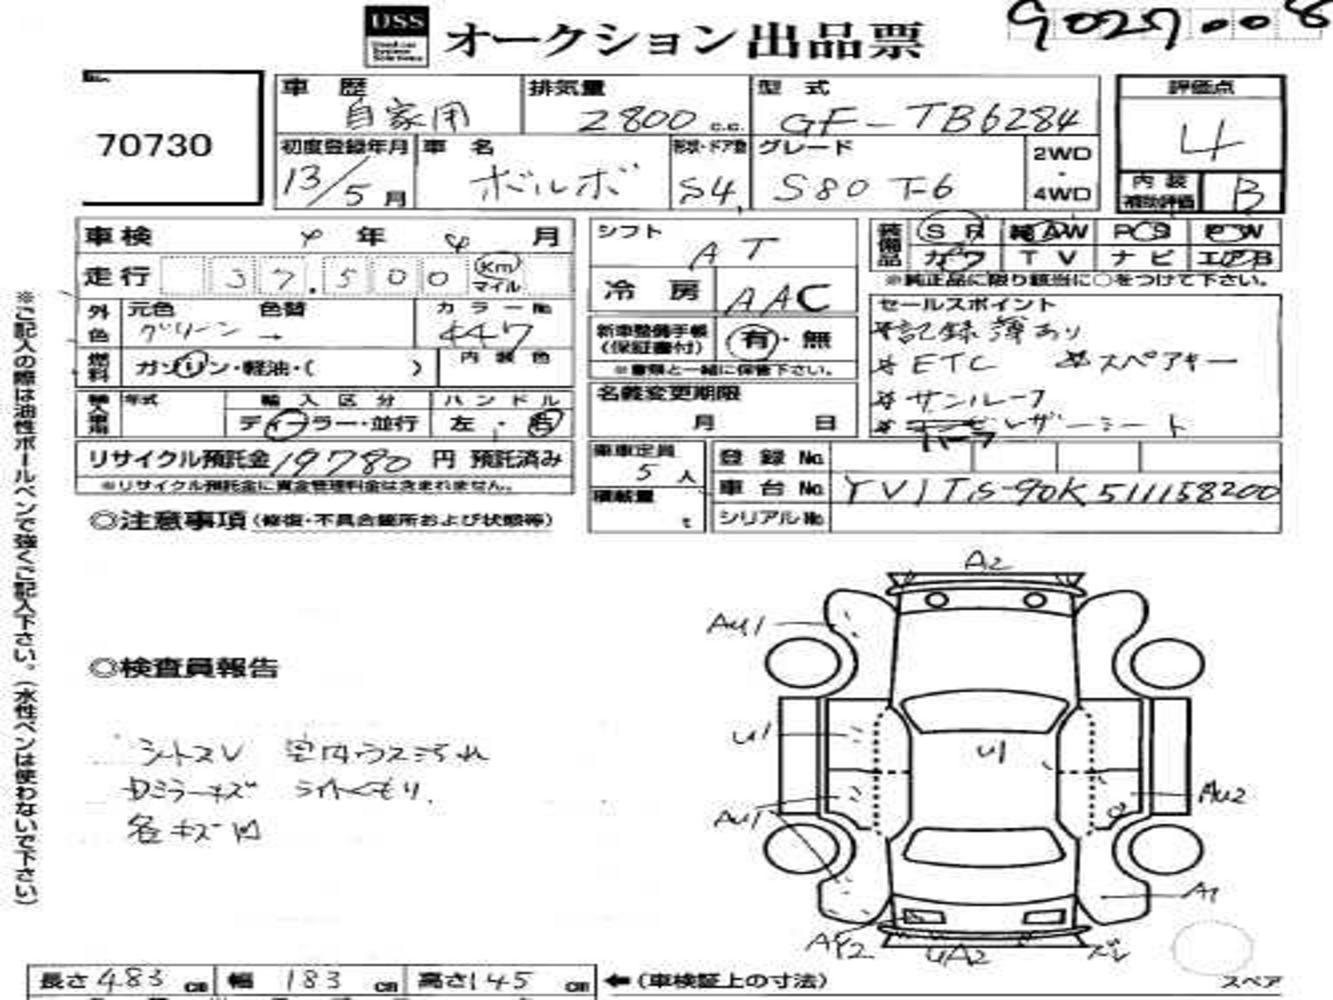 USS オークション出品票 9027008
70730
車歴 自家用
排気量 2800 c.c.
型式 GF-TB6284
評価点 4
初度登録年月 13/5月
車名 ボルボ
形状・ドア数 S4
グレード S80 T-6
2WD・4WD
内装補助評価 B
車検 年 月
シフト AT
装備品 SR AW PS PW
カワ TV ナビ エアB
※純正品に限り該当に○をつけて下さい。
走行 37.500 km マイル
冷房 AAC
外色 元色 グリーン 色替 → カラーNo. 447
新車整備手帳(保証書付) 有・無
※書類と一緒に保管下さい。
セールスポイント
*記録簿あり
*ETC *スペアキー
*サンルーフ
* レザーシート
燃料 ガソリン・軽油・( ) 内装色
名義変更期限 月 日
輸入車用 年式 輸入区分 ディーラー・並行 ハンドル 左・右
リサイクル預託金 19780 円 預託済み
※リサイクル預託金に資金管理料金は含まれません。
乗車定員 5人
積載量 t
登録No.
車台No. YV1TS-90K511158200
シリアルNo.
◎注意事項(修復・不具合箇所および状態等)
※ご記入の際は油性ボールペンで強くご記入下さい。(水性ペンは使わないで下さい)
A2
AU1
◎検査員報告
シートスレ 室内ウスヨゴレ
Dミラーキズ ライトくもり
各キズ凹
U1
U1
AU1
AU2
A1
AY2
UA2
ズレ
長さ 483 cm 幅 183 cm 高さ 145 cm ←(車検証上の寸法)
スペア